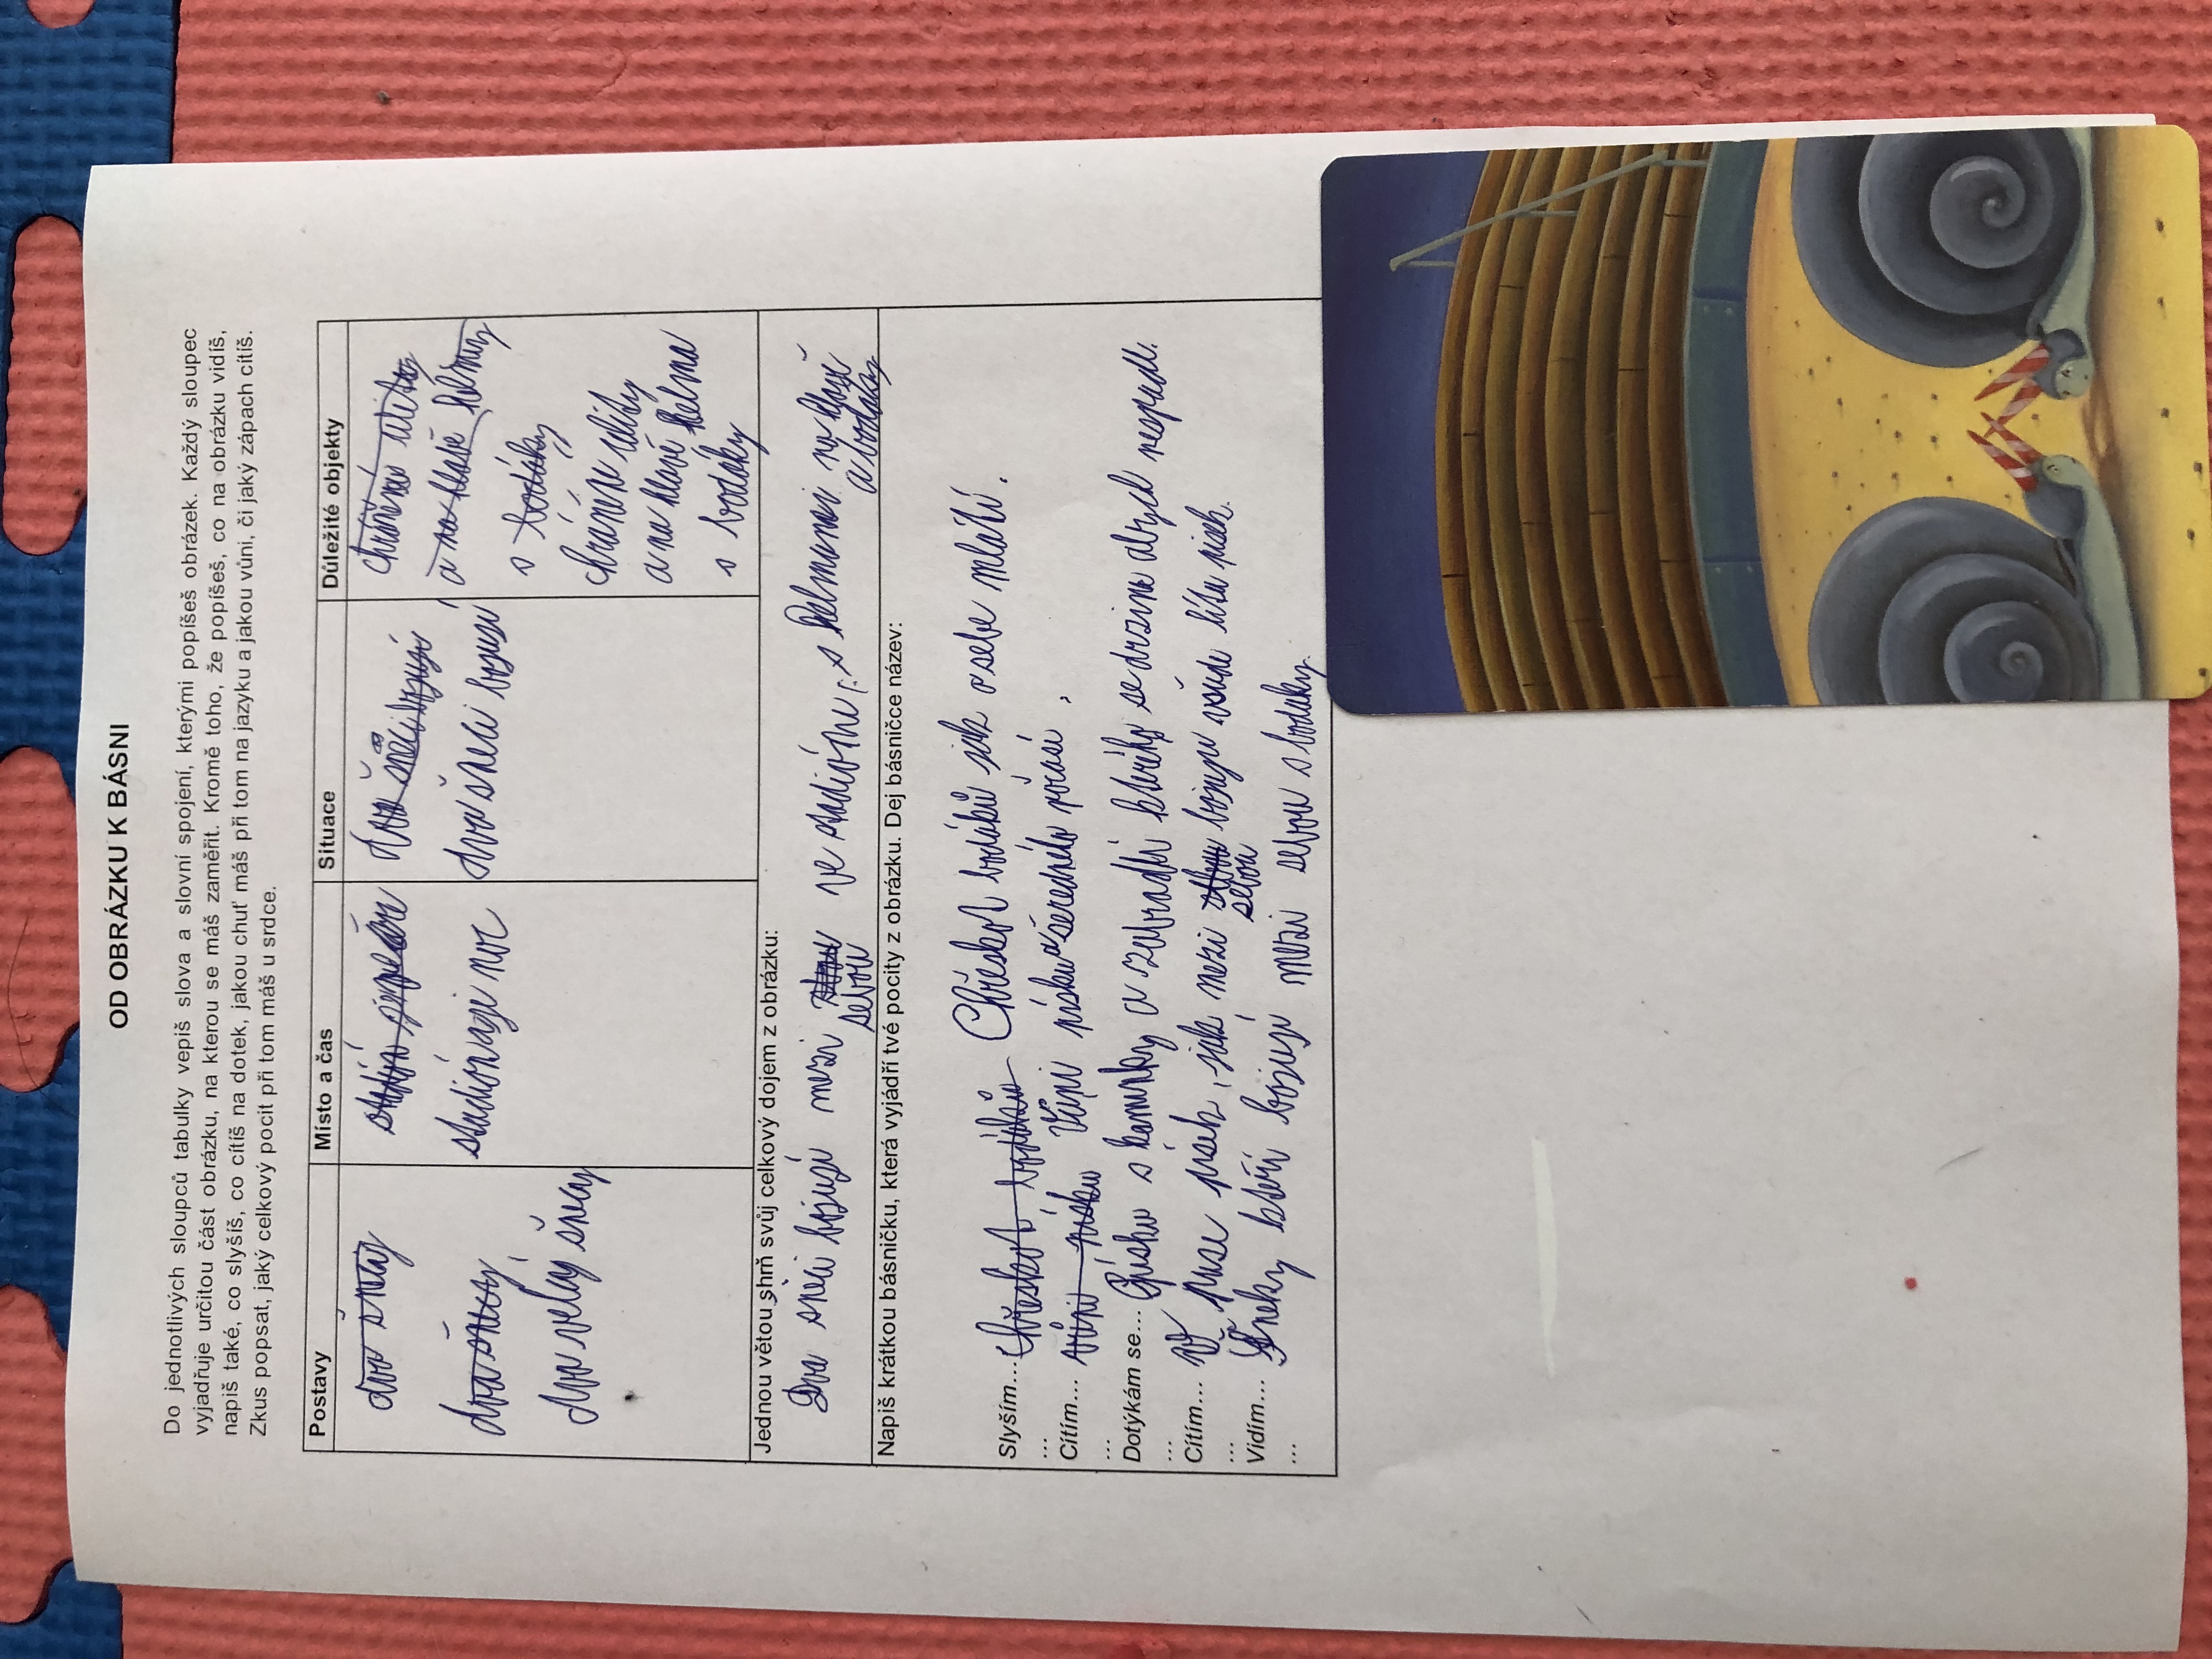 OD OBRÁZKU K BÁSNI
Do jednotlivých sloupců tabulky vepiš slova a slovní spojení, kterými popíšeš obrázek. Každý sloupec
vyjadřuje určitou část obrázku, na kterou se máš zaměřit. Kromě toho, že popíšeš, co na obrázku vidíš,
napiš také, co slyšíš, co cítíš na dotek, jakou chuť máš při tom na jazyku a jakou vůni, či jaký zápach cítíš.
Zkus popsat, jaký celkový pocit při tom máš u srdce.
Postavy
dva šneky
dva šnecy
dva velcý šnecy
Místo a čas
stadión
stadión a je noc
Situace
dva šneci bojují
dva šneci bojují
Důležité objekty
chrání ulita
a na hlavě helmy
s bodáky
chrání ulity
a na hlavě helma
s bodáky
Jednou větou shrň svůj celkový dojem z obrázku:
Dva šneci bojují mezi sebou ve stadióne s helmami na hlavě
a bodáky
Napiš krátkou básničku, která vyjádří tvé pocity z obrázku. Dej básničce název:
Slyším... Chřeskot bodáků Chřeskot bodáků jak o sebe mlátí.
...
Cítím... vůni písku Vůni písku a šeredného
...
Dotýkám se... písku s kamínky a zábradlí kterého se držíme abych nespadl.
...
Cítím... v puse písek, jak mezi sebou bojují všude lítá písek.
...
Vidím... Šneky kteří bojují mezi sebou s bodáky.
...